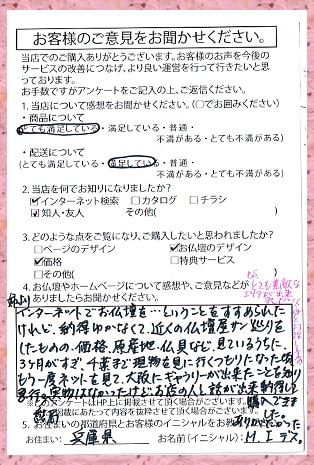 お客様のご意見をお聞かせください。
当店でのご購入ありがとうございます。お客様のお声を今後の
サービスの改善につなげ、より良い運営を行って行きたいと思
っております。
お手数ですがアンケートをご記入の上、ご返信ください。
1. 当店について感想をお聞かせください。(○でお囲みください)
・商品について
とても満足している・満足している・普通・
不満がある・とても不満がある
・配送について
とても満足している・満足している・普通・
不満がある・とても不満がある
2. 当店を何でお知りになりましたか?
☑インターネット検索 □カタログ □チラシ
☑知人・友人 その他( )
3. どのような点をご覧になり、ご購入したいと思われましたか?
□ページのデザイン ☑お仏壇のデザイン
☑価格 □特典サービス
□その他( )
4. お仏壇やホームページについて感想や、ご意見などが
ありましたらお聞かせください。
とても素敵な
インターネットでお仏壇を…ということをすすめられた
けれど、納得ゆかなくて、近くの仏壇屋サン巡りを
したものの、価格、原産地、仏具など、見ているうちに、
3ヶ月がすぎ、
現物を見に行くつもりになった頃
もう一度ネットを見て、大阪にギャラリーが出来たことを知り
実物はなかったけど、お店の人と話が出来納得して
購入できま
した。
ありがとうございました
※このアンケートはHP上に掲載させて頂く場合がございます。
掲載にあたって内容を抜粋させて頂く場合がございます。
5. お住まいの都道府県とお客様のイニシャルをお教え
お住まい: 兵庫県 お名前(イニシャル): M.I デス。